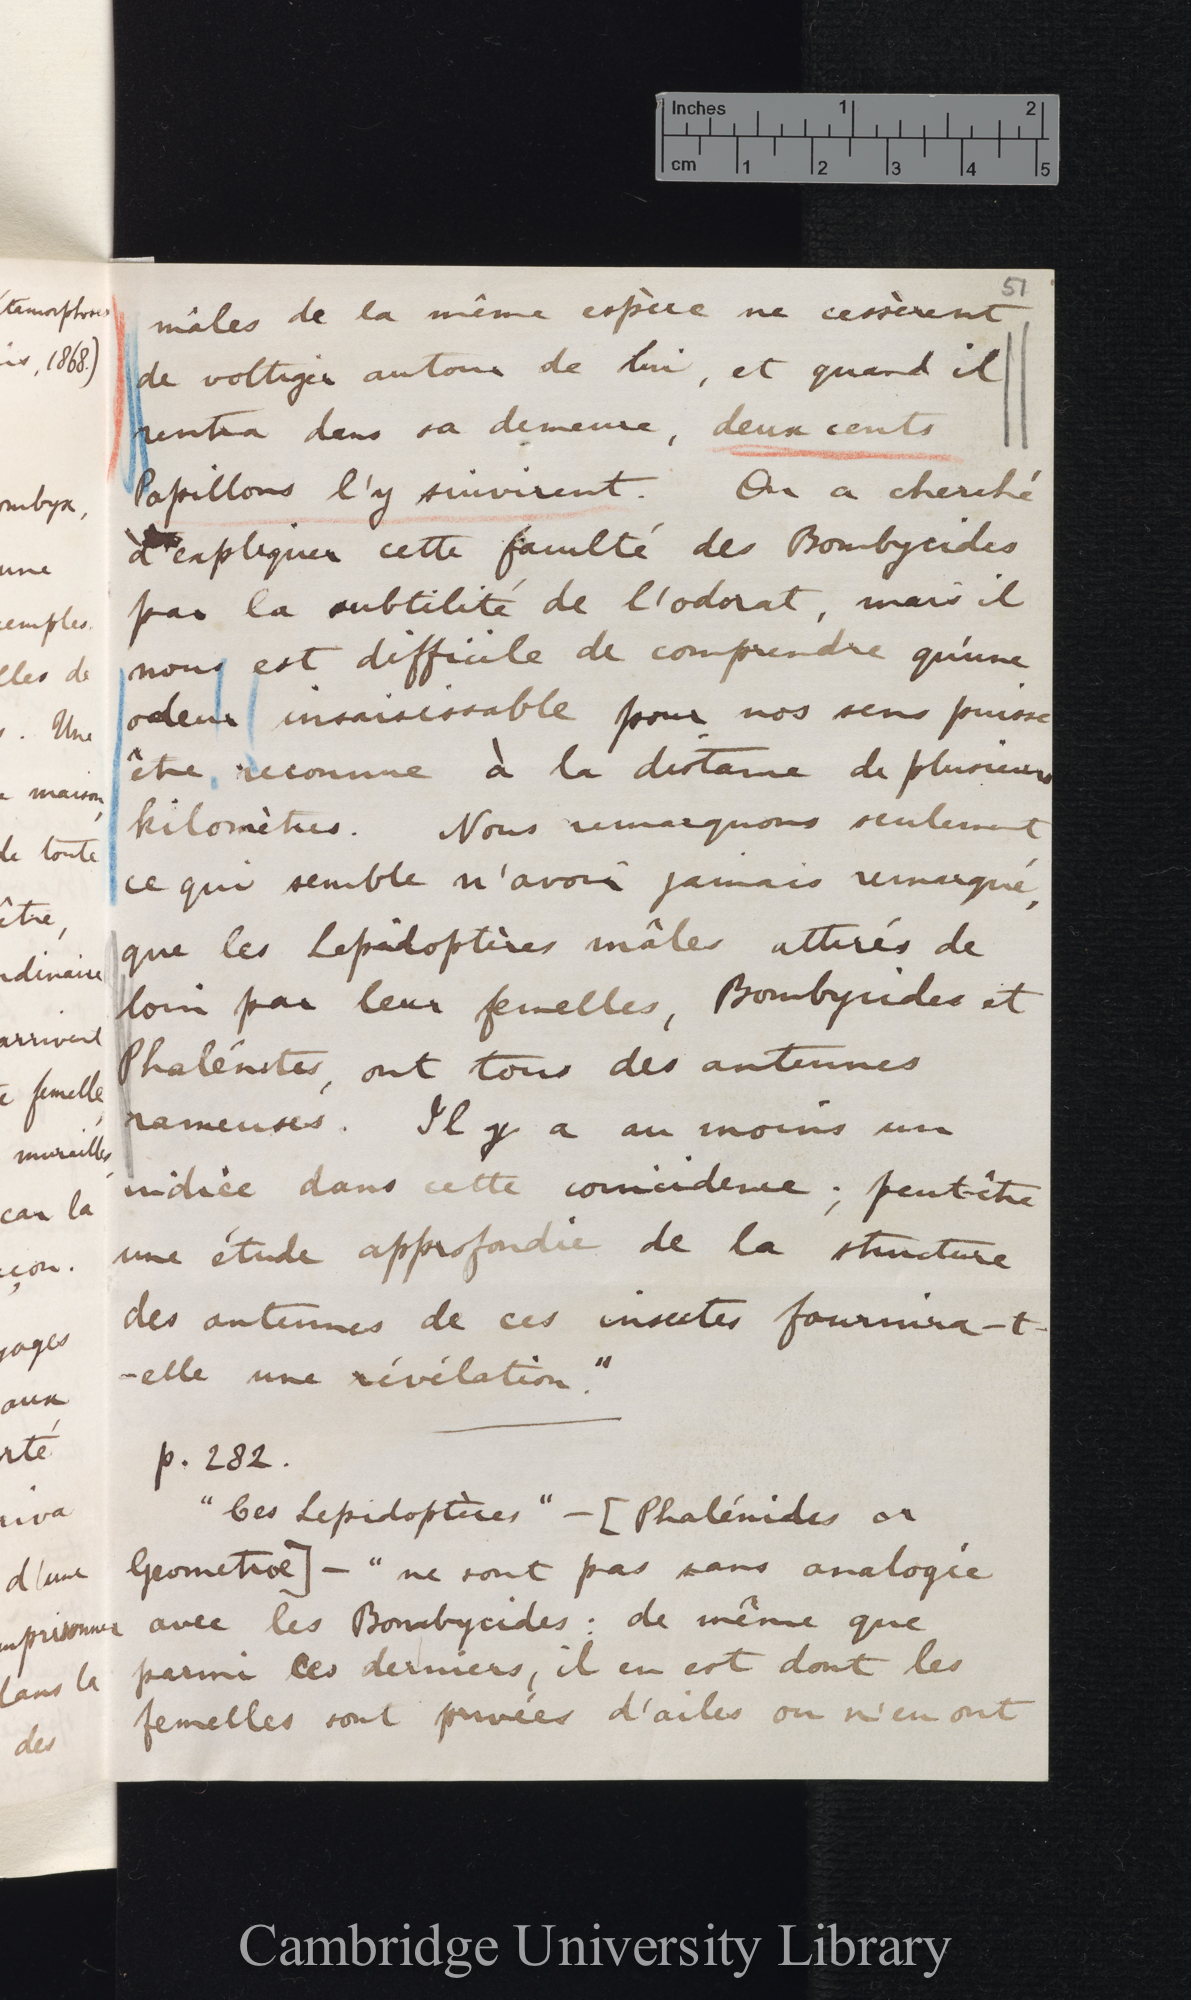 Inches 1 2
cm 1 2 3 4 5
51
mâles de la même espèce ne cessèrent
de voltiger autour de lui, et quand il
rentra dans sa demeure, deux cents
Papillons l'y suivirent. On a cherché
d'expliquer cette faculté des Bombycides
par la subtilité de l'odorat, mais il
nous est difficile de comprendre qu'une
odeur insaisissable pour nos sens puisse
être reconnue à la distance de plusieurs
kilomètres. Nous remarquons seulement
ce qui semble n'avoir jamais remarqué,
que les Lepidoptères mâles attirés de
loin par leur femelles, Bombycides et
Phalénites, ont tous des antennes
rameuses. Il y a au moins un
indice dans cette coincidence; peut-être
une étude approfondie de la structure
des antennes de ces insectes fournira-t-
-elle une révélation."
p. 282.
"Ces Lepidoptères" — [Phalénides or
Geometræ] — "ne sont pas sans analogie
avec les Bombycides: de même que
parmi ces derniers, il en est dont les
femelles sont privées d'ailes ou n'en ont
is, 1868.)
ombyx,
une
emples.
lles de
. Une
maison,
de toute
être,
rdinaire
arrivent
femelle,
murailles,
car la
çon.
yages
aux
rté
riva
d'une
mprisonner
dans la
des
Cambridge University Library